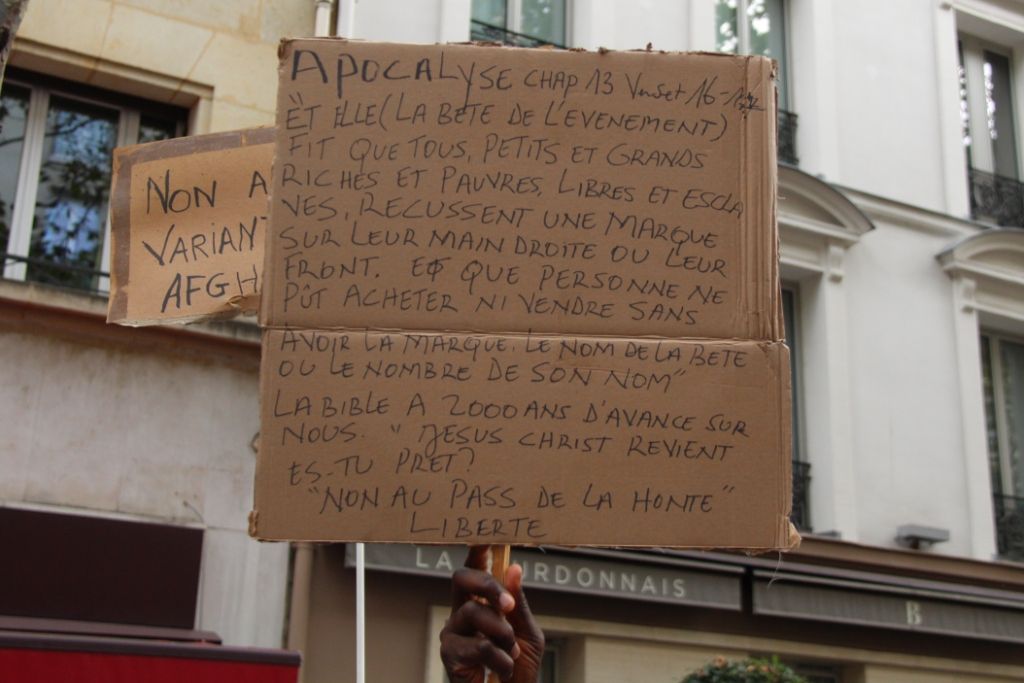 APOCALYSE CHAP 13 Verset 16-17
"ET ELLE (LA BETE DE L'EVENEMENT)
FIT QUE TOUS, PETITS ET GRANDS
RICHES ET PAUVRES, LIBRES ET ESCLA
VES, RECUSSENT UNE MARQUE
SUR LEUR MAIN DROITE OU LEUR
FRONT. ET QUE PERSONNE NE
PÛT ACHETER NI VENDRE SANS
AVOIR LA MARQUE. LE NOM DE LA BETE
OU LE NOMBRE DE SON NOM"
LA BIBLE A 2000 ANS D'AVANCE SUR
NOUS. " JESUS CHRIST REVIENT
ES-TU PRET?
"NON AU PASS DE LA HONTE"
LIBERTE
NON A
VARIANT
AFGH
LA URDONNAIS
B